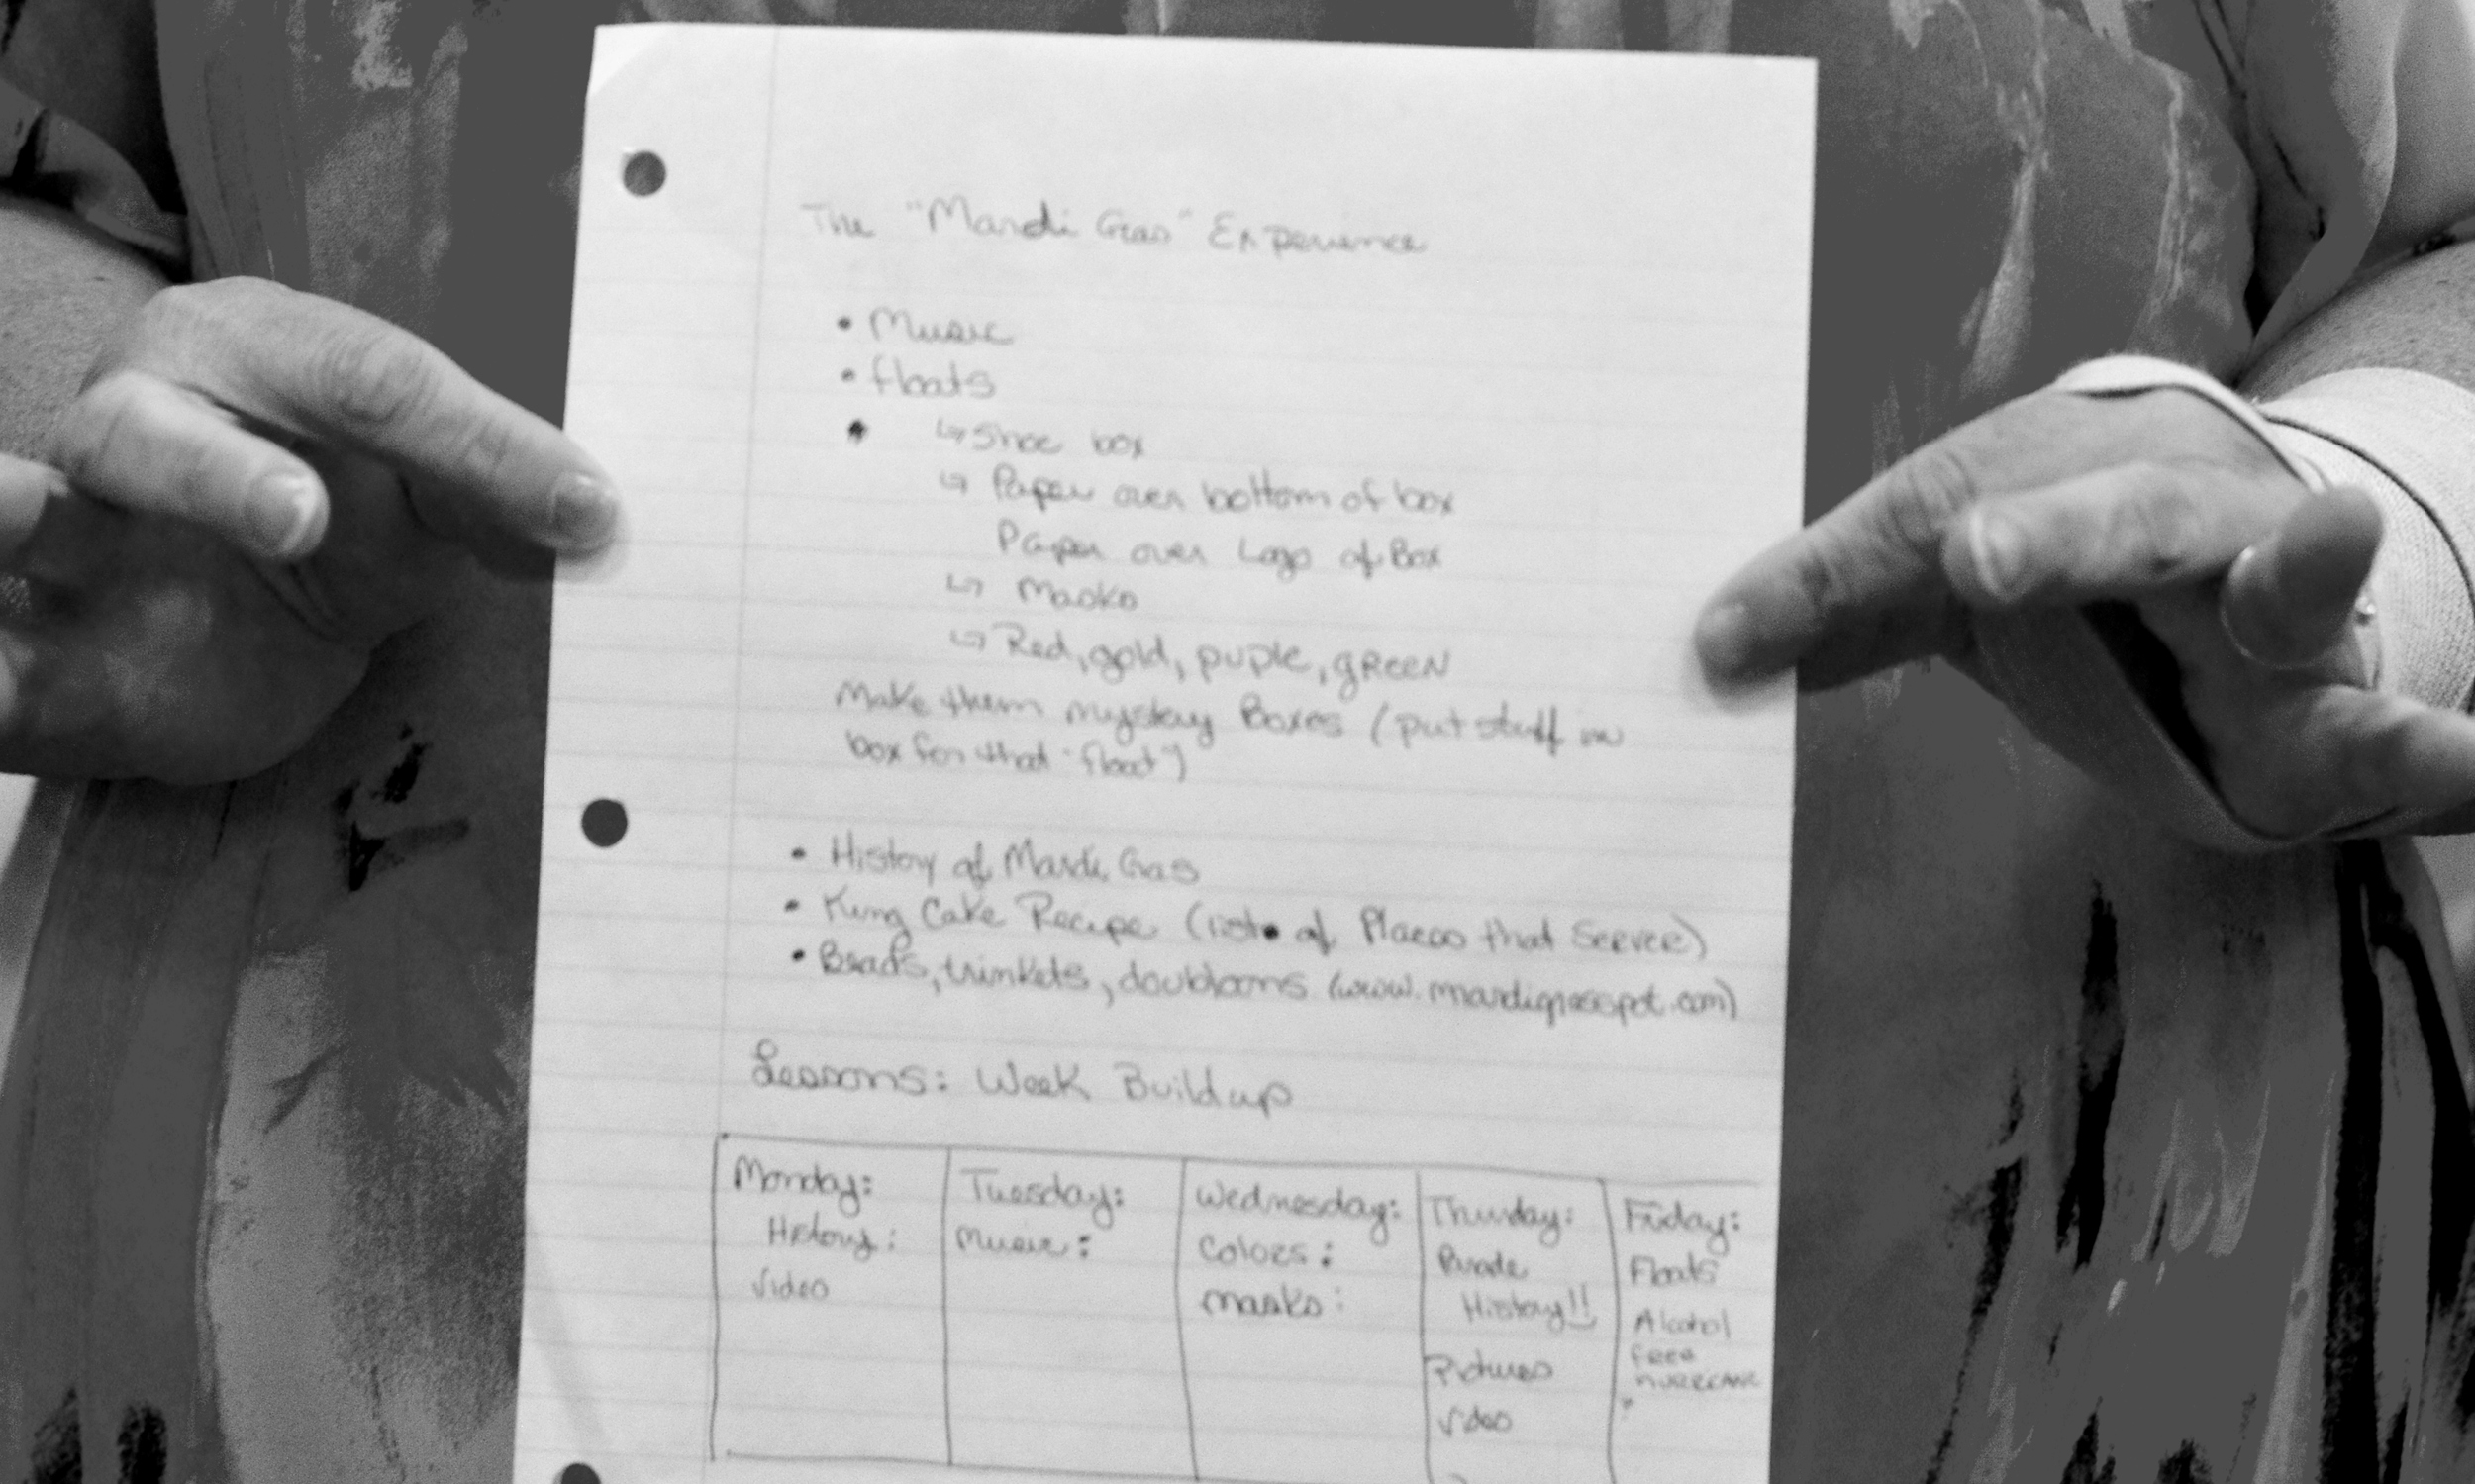 The "Mardi Gras" Experience
• Music
• floats
• ↳ Shoe box
↳ Paper over bottom of box
Paper over Logo of Box
↳ Masks
↳ Red, gold, puple, gREEN
Make them mystery Boxes (put stuff in
box for that "float")
• History of Mardi Gras
• King Cake Recipe (list of Places that Server)
• Beads, trinkets, doubloons (www.mardigrasspot.com)
Lessons: Week Buildup
Monday:
History:
Video
Tuesday:
Music:
Wednesday:
Colors:
masks:
Thursday:
Parade
History!!
Pictures
Video
Friday:
Floats
Alcohol
free
HURRICANE